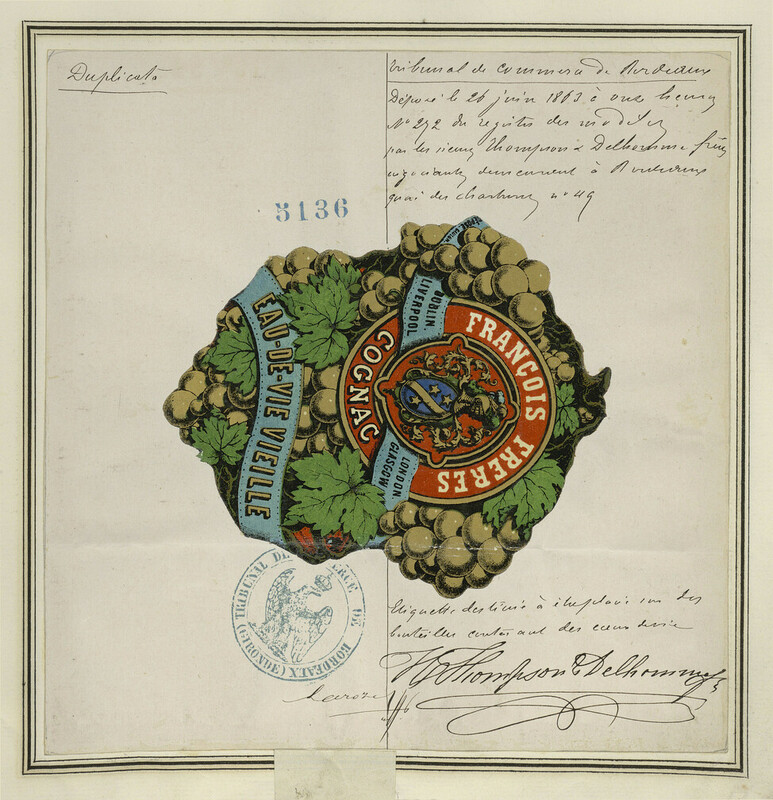 Duplicata
Tribunal de Commerce de Bordeaux
Déposé le 26 juin 1863 à onze heures
N° 272 du registre des modèles
par les sieurs Thompson & Delhomme frères
négociants demeurant à Bordeaux
quai des chartrons n° 49
5136
DUBLIN
LIVERPOOL
FRANÇOIS FRERES
COGNAC
LONDON
GLASGOW
EAU-DE-VIE VIEILLE
TRIBUNAL DE COMMERCE DE BORDEAUX (GIRONDE)
Etiquette destinée à être placée sur des
bouteilles contenant des eaux de vie
Thompson & Delhomme